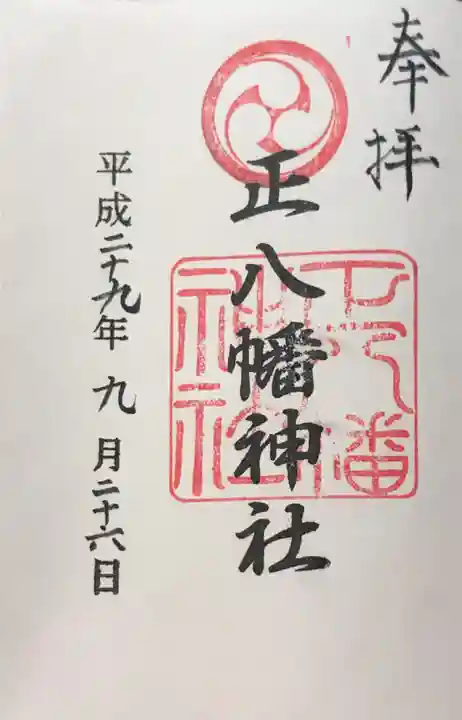 奉拝
正八幡神社
平成二十九年 九 月二十六日